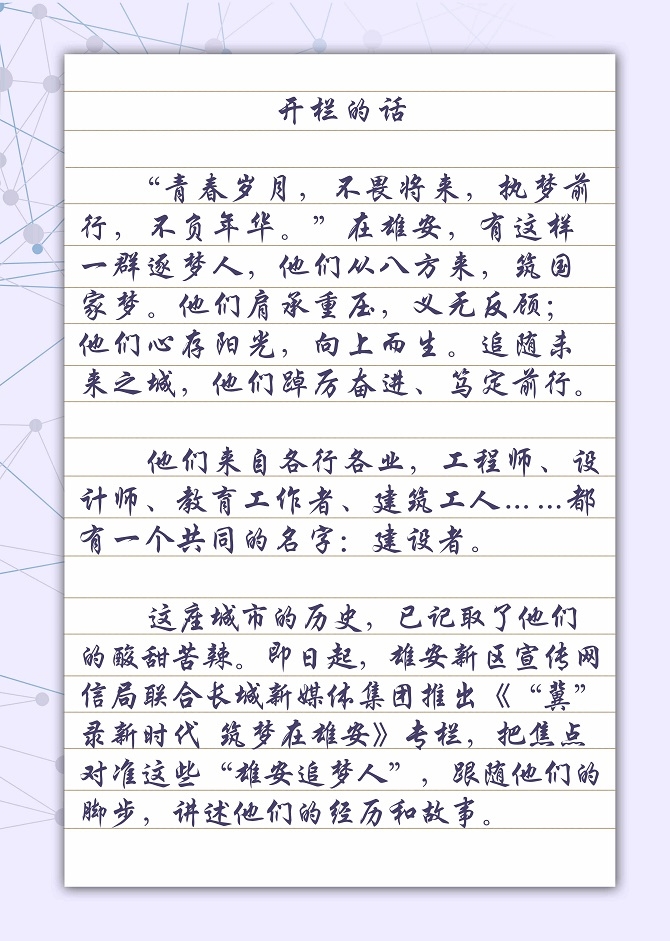 开栏的话
“青春岁月，不畏将来，执梦前
行，不负年华。”在雄安，有这样
一群逐梦人，他们从八方来，筑国
家梦。他们肩承重压，义无反顾；
他们心存阳光，向上而生。追随未
来之城，他们踔厉奋进、笃定前行。
他们来自各行各业，工程师、设
计师、教育工作者、建筑工人……都
有一个共同的名字：建设者。
这座城市的历史，已记取了他们
的酸甜苦辣。即日起，雄安新区宣传网
信局联合长城新媒体集团推出《“冀”
录新时代 筑梦在雄安》专栏，把焦点
对准这些“雄安追梦人”，跟随他们的
脚步，讲述他们的经历和故事。